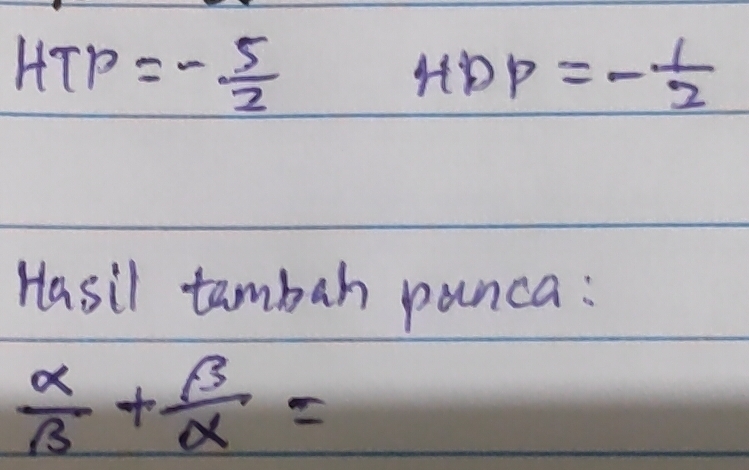 HTP = - 5/2 HDP = - 1/2
Hasil tambah punca :
α/β + β/α =